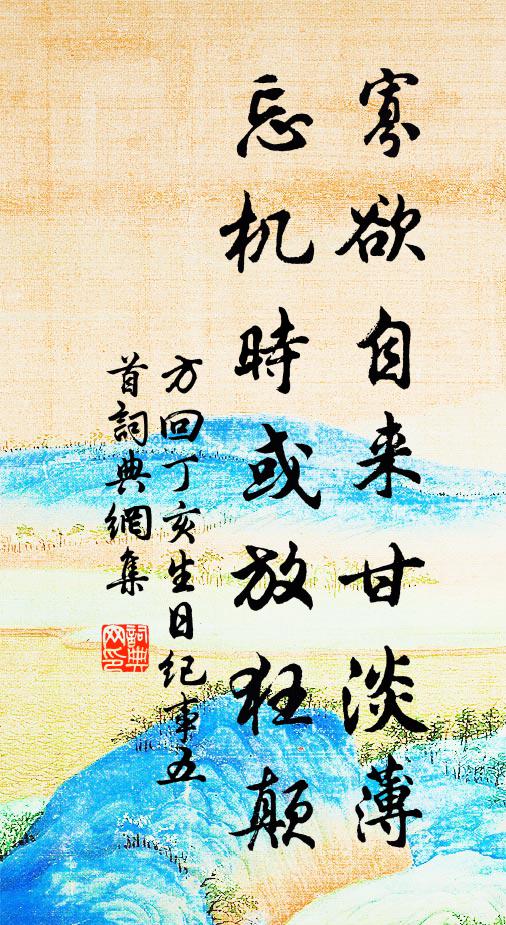 寡欲自来甘淡薄
忘机時或放狂颠
方回丁亥生日纪事五
首詞典網集
詞典
网印